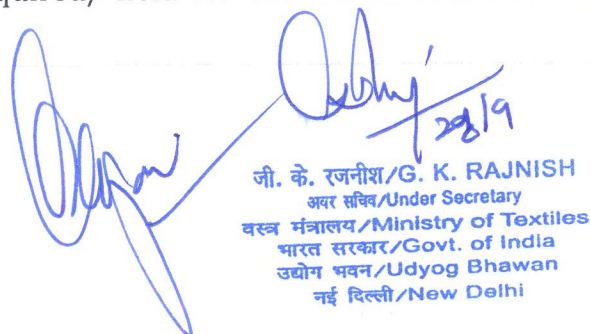 जी. के. रजनीश/G. K. RAJNISH
अवर सचिव/Under Secretary
वस्त्र मंत्रालय/Ministry of Textiles
भारत सरकार/Govt. of India
उद्योग भवन/Udyog Bhawan
नई दिल्ली/New Delhi